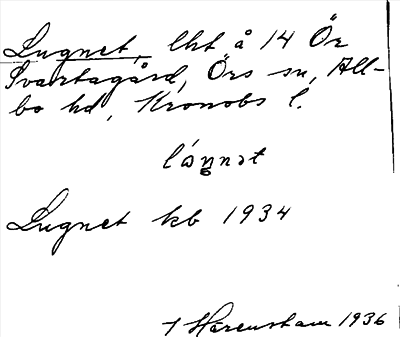 Lugnet, lht å 14 Ör
Svartagård, Örs sn, All-
bo hd, Kronobs l.
Lugnet kb 1934
Harenstam 1936